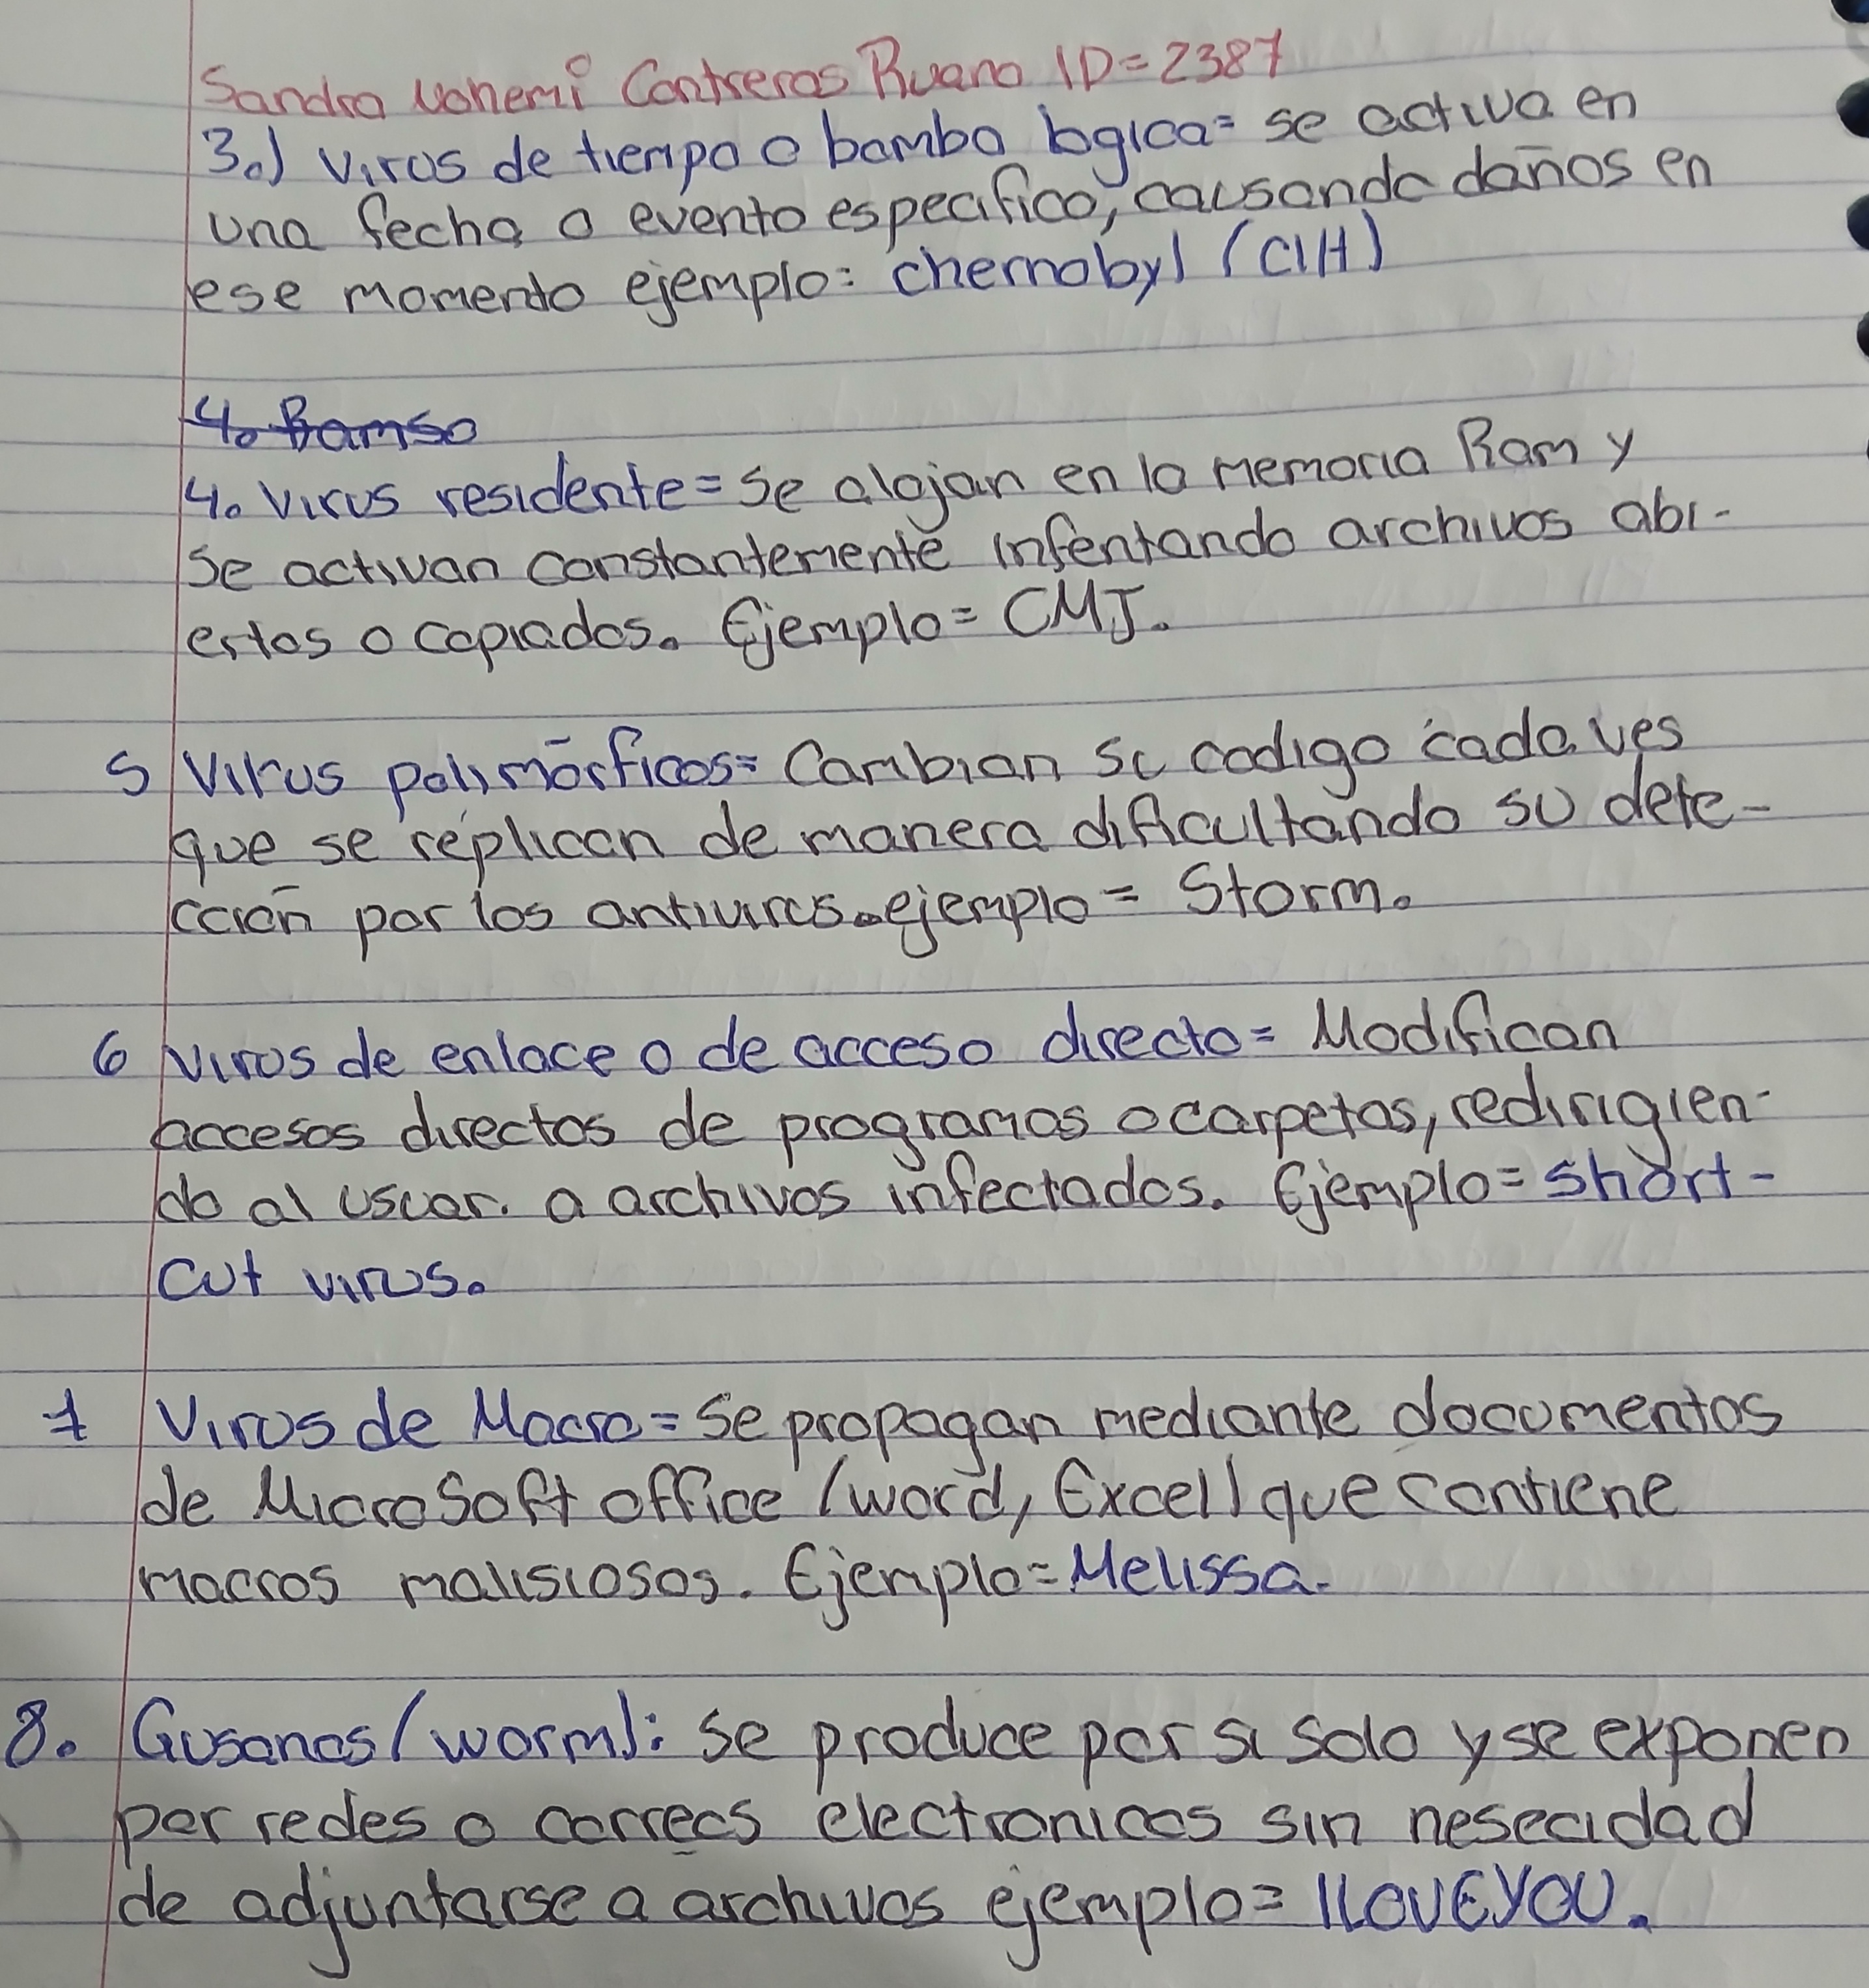 Sandra Nohemi Contreras Ruano ID=2387
3.) Virus de tiempo o bomba logica= se activa en
una fecha o evento especifico, causando daños en
ese momento ejemplo: chernobyl (CIH)
4. Ramso
4. Virus residente= Se alojan en la memoria Ram y
Se activan constantemente infentando archivos abi-
ertos o copiados. Ejemplo= CMJ.
5 Virus polimórficos= Cambian su codigo cada ves
que se replican de manera dificultando su dete-
cción por los antivirus. ejemplo= Storm.
6 Virus de enlace o de acceso directo= Modifican
accesos directos de programas o carpetas, redirigien-
do al usuar. a archivos infectados. Ejemplo= short-
cut virus.
7 Virus de Macro= Se propagan mediante documentos
de MicroSoft office (word, Excel) que contiene
macros malisiosos. Ejemplo= Melissa.
8. Gusanos (worm): se produce por si solo y se exponen
por redes o correos electronicos sin nesecidad
de adjuntarse a archivos ejemplo= ILOVEYOU.